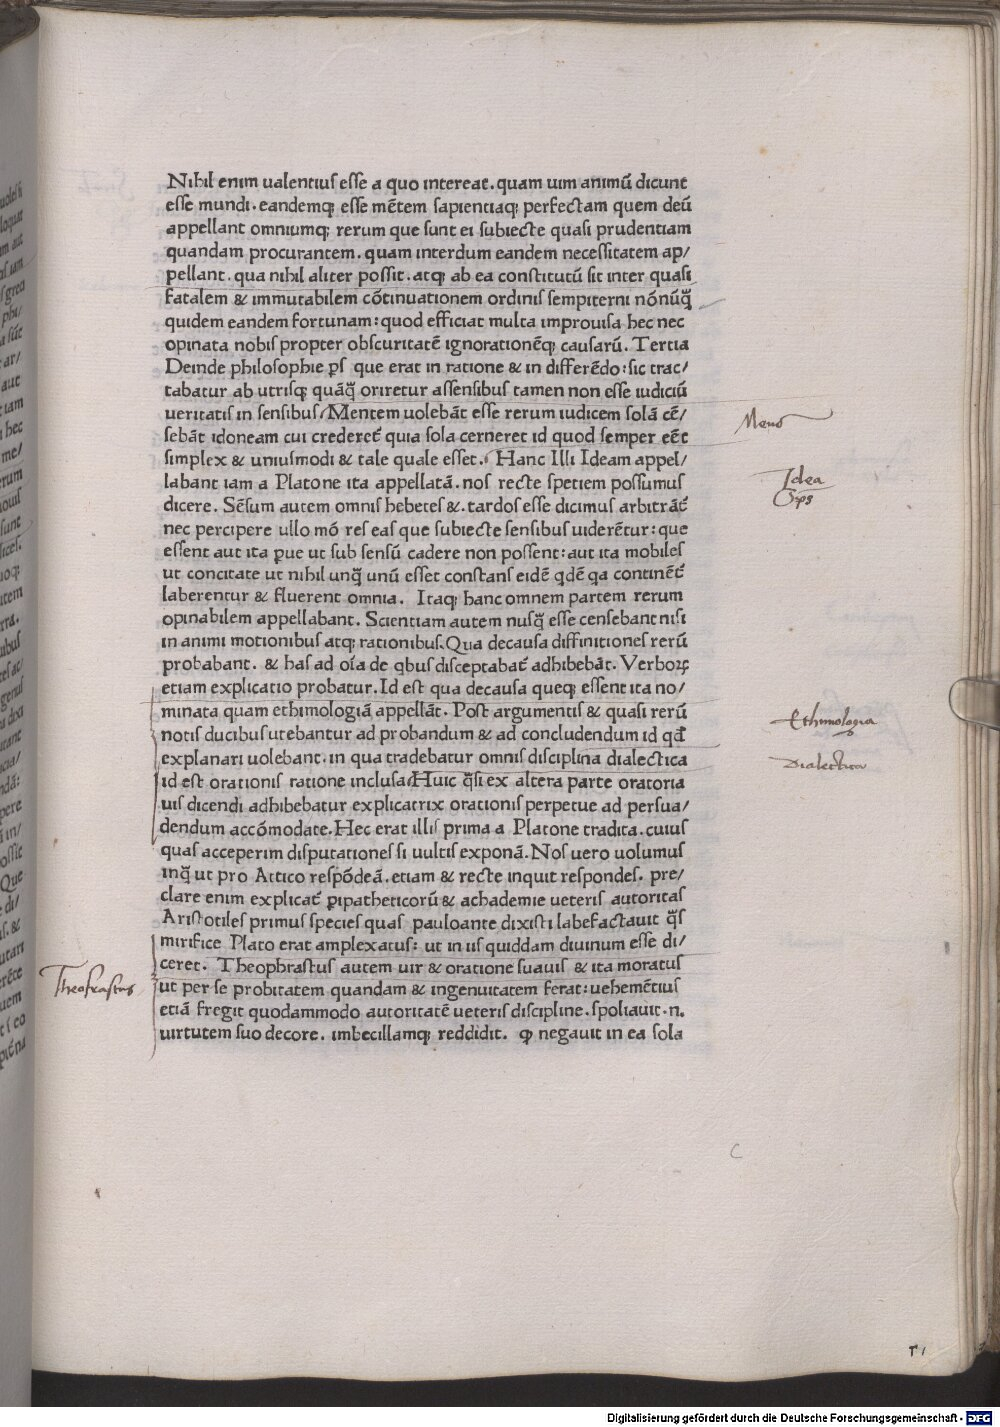 Nihil enim ualentius esse a quo intereat. quam uim animū dicunt
esse mundi. eandemq; esse mētem sapientiaq; perfectam quem deū
appellant omniumq; rerum que sunt ei subiecte quasi prudentiam
quandam procurantem. quam interdum eandem necessitatem ap/
pellant. qua nihil aliter possit. atq; ab ea constitutū sit inter quasi
fatalem & immutabilem cōtinuationem ordinis sempiterni nōnūq̄
quidem eandem fortunam: quod efficiat multa improuisa hec nec
opinata nobis propter obscuritatē ignorationēq; causarū. Tertia
Deinde philosophie ꝑs que erat in ratione & in differēdo: sic trac/
tabatur ab utrisq; quāq̄ oriretur assensibus tamen non esse iudiciū
ueritatis in sensibus/Mentem uolebāt esse rerum iudicem solā cē/
sebāt idoneam cui crederet᷑ quia sola cerneret id quod semper eēt
simplex & uniusmodi & tale quale esset. Hanc Illi Ideam appel/
labant iam a Platone ita appellatā. nos recte spetiem possumus
dicere. Sēsum autem omnis hebetes &. tardos esse dicimus arbitrāt᷑
nec percipere ullo mō res eas que subiecte sensibus uiderētur: que
essent aut ita ꝑue ut sub sensū cadere non possent: aut ita mobiles
ut concitate ut nihil unq̄ unū esset constans eidē qdē qa continēt᷑
laberentur & fluerent omnia. Itaq; hanc omnem partem rerum
opinabilem appellabant. Scientiam autem nusq̄ esse censebant nisi
in animi motionibus atq; rationibus. Qua decausa diffinitiones rerū
probabant. & has ad oīa de qbus disceptabat᷑ adhibebāt. Verboꝝ
etiam explicatio probatur. Id est qua decausa queq; essent ita no/
minata quam ethimologiā appellāt. Post argumentis & quasi rerū
notis ducibus utebantur ad probandum & ad concludendum id qđ
explanari uolebant. in qua tradebatur omnis disciplina dialectica
id est orationis ratione inclusa. Huic q̄si ex altera parte oratoria
uis dicendi adhibebatur explicatrix orationis perpetue ad persua/
dendum accōmodate. Hec erat illis prima a Platone tradita. cuius
quas acceperim disputationes si uultis exponā. Nos uero uolumus
inq̄ ut pro Attico respōdeā. etiam & recte inquit respondes. pre/
clare enim explicat᷑ ꝑipatheticorū & achademie ueteris autoritas
Aristotiles primus species quas pauloante dixisti labefactauit q̄s
mirifice Plato erat amplexatus: ut in iis quiddam diuinum esse di/
ceret. Theophrastus autem uir & oratione suauis & ita moratus
ut per se probitatem quandam & ingenuitatem ferat: uehemētius
etiā fregit quodammodo autoritatē ueteris discipline. spoliauit. n.
uirtutem suo decore. imbecillamq; reddidit. ꝙ negauit in ea sola
Mens
Idea
Ethimologia
Dialectica
Theofrastus
Digitalisierung gefördert durch die Deutsche Forschungsgemeinschaft - DFG